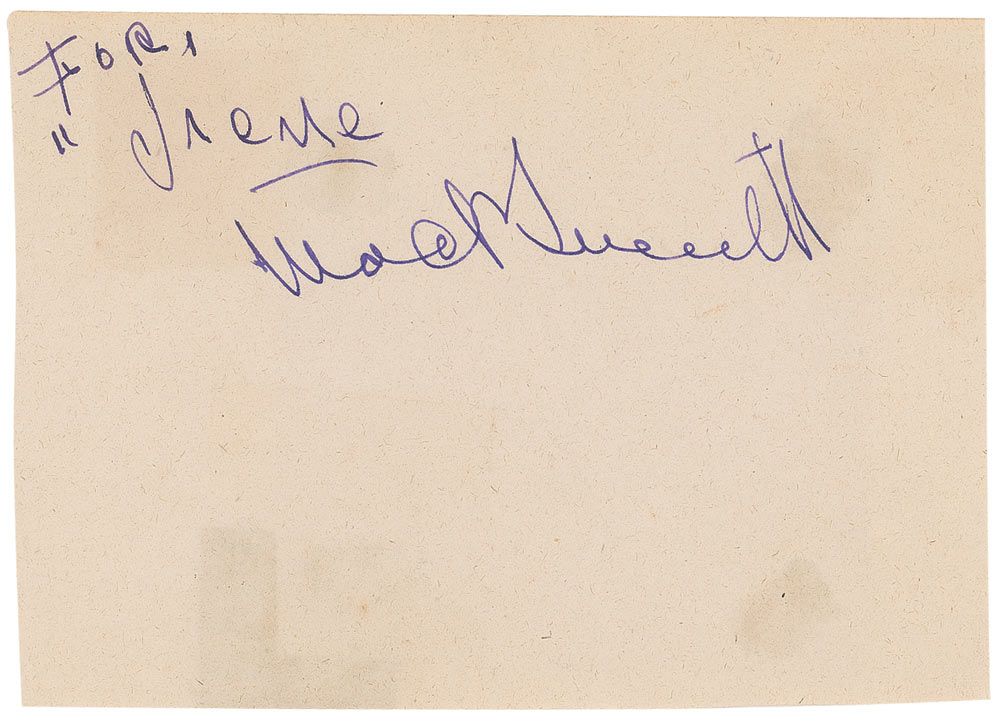 FOR,
" Irene
Mack Sennett